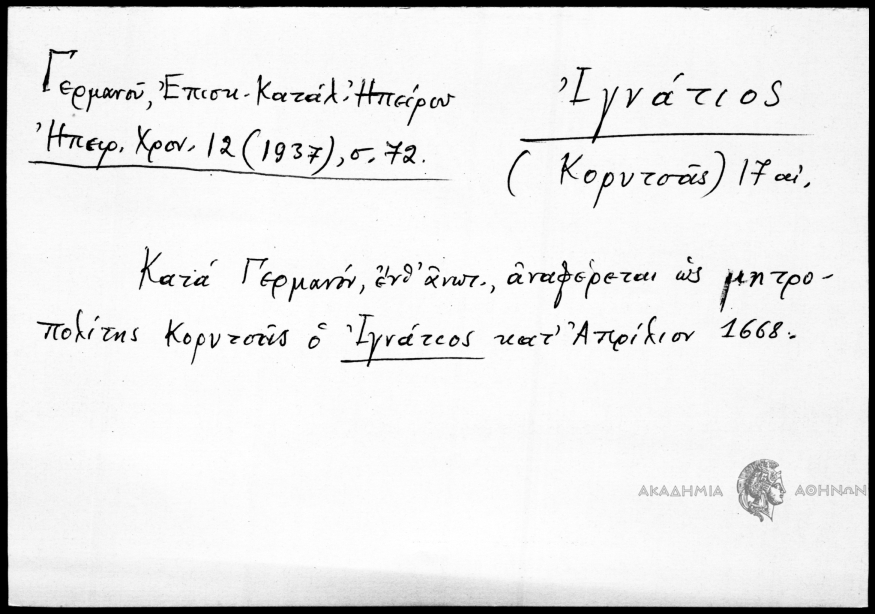 Γερμανοῦ, Ἐπισκ. Κατάλ. Ἠπείρου
Ἠπειρ. Χρον. 12 (1937), σ. 72.
Ἰγνάτιος
(Κορυτσᾶς) 17 αἰ.
Κατά Γερμανόν, ἔνθ' ἄνωτ., ἀναφέρεται ὡς μητρο-
πολίτης Κορυτσᾶς ὁ Ἰγνάτιος κατ' Ἀπρίλιον 1668.
ΑΚΑΔΗΜΙΑ ΑΘΗΝΩΝ